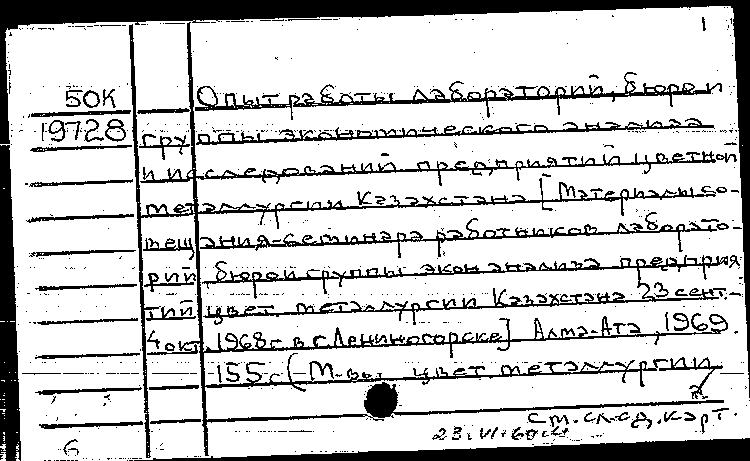 1
50К Опыт работы лабораторий, бюро и
19728 группы экономического анализа
и исследований предприятий цветной
металлургии Казахстана [Материалы со-
вещания-семинара работников лаборато-
рий бюро и группы экон анализа предприя
тий цвет. металлургии Казахстана 23 сент.-
4 окт. 1968 г. в г. Лениногорске] Алма-Ата, 1969.
155 с (М-во цвет. металлургии
см. след. карт.
6